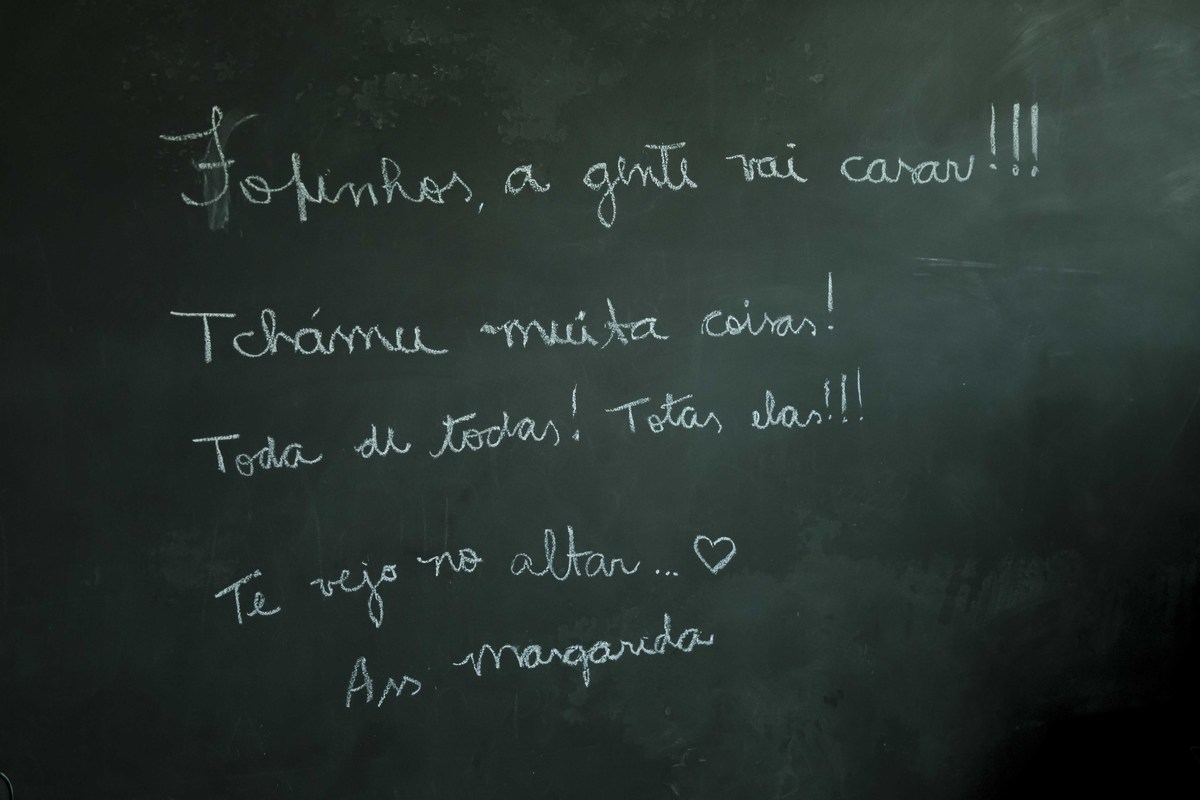 Fopinhos, a gente vai casar!!!
Tchámu muita coisas!
Toda di todas! Totas elas!!!
Te vejo no altar... ♡
Ass margarida